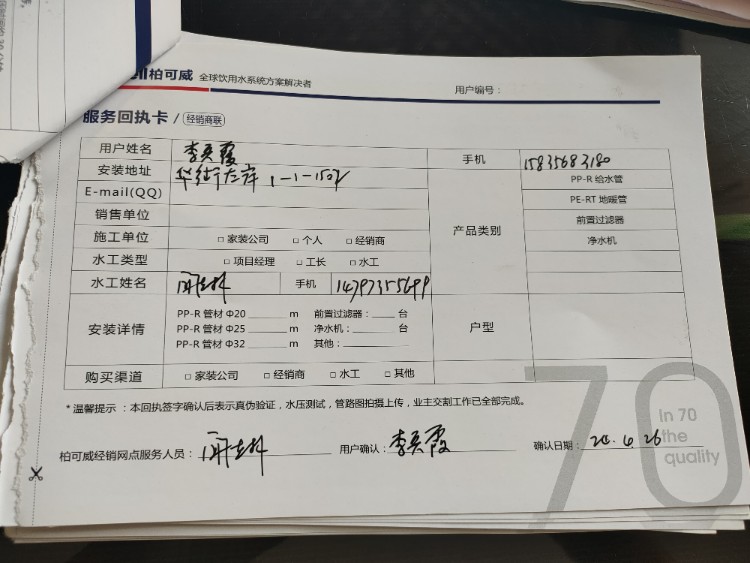 柏可威 全球饮用水系统方案解决者
用户编号：
服务回执卡 / 经销商联
用户姓名 李英霞 手机 15835683180
安装地址 1-1-1502
E-mail(QQ)
销售单位
产品类别
PP-R 给水管
PE-RT 地暖管
前置过滤器
净水机
施工单位 □ 家装公司 □ 个人 □ 经销商
水工类型 □ 项目经理 □ 工长 □ 水工
水工姓名 手机 14797355699
安装详情
PP-R 管材 Φ20 m 前置过滤器： 台
PP-R 管材 Φ25 m 净水机： 台
PP-R 管材 Φ32 m 其他：
户型
购买渠道 □ 家装公司 □ 经销商 □ 水工 □ 其他
*温馨提示：本回执签字确认后表示真伪验证，水压测试，管路图拍摄上传，业主交割工作已全部完成。
柏可威经销网点服务人员： 用户确认：李英霞 确认日期：24.4.26
70
in 70
the
quality